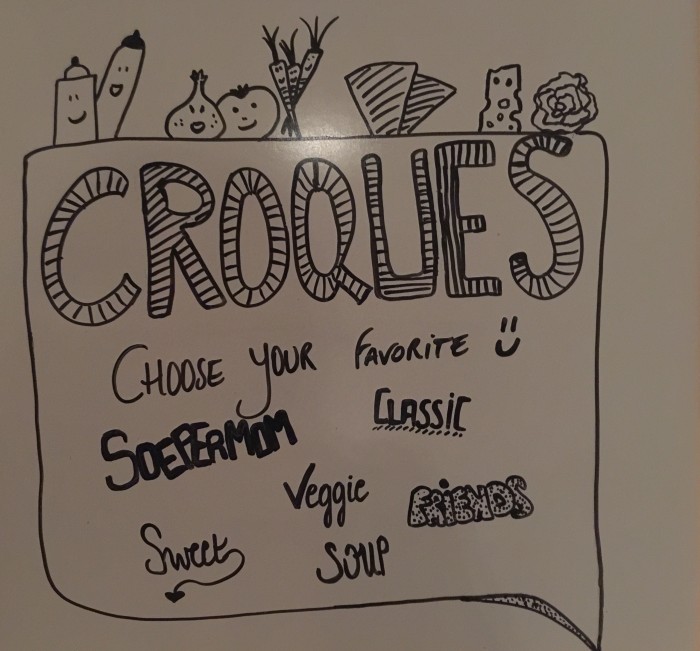 CROQUES
CHOOSE YOUR FAVORITE
CLASSIC
SOEPERMOM
Veggie FRIENDS
Sweet SOUP